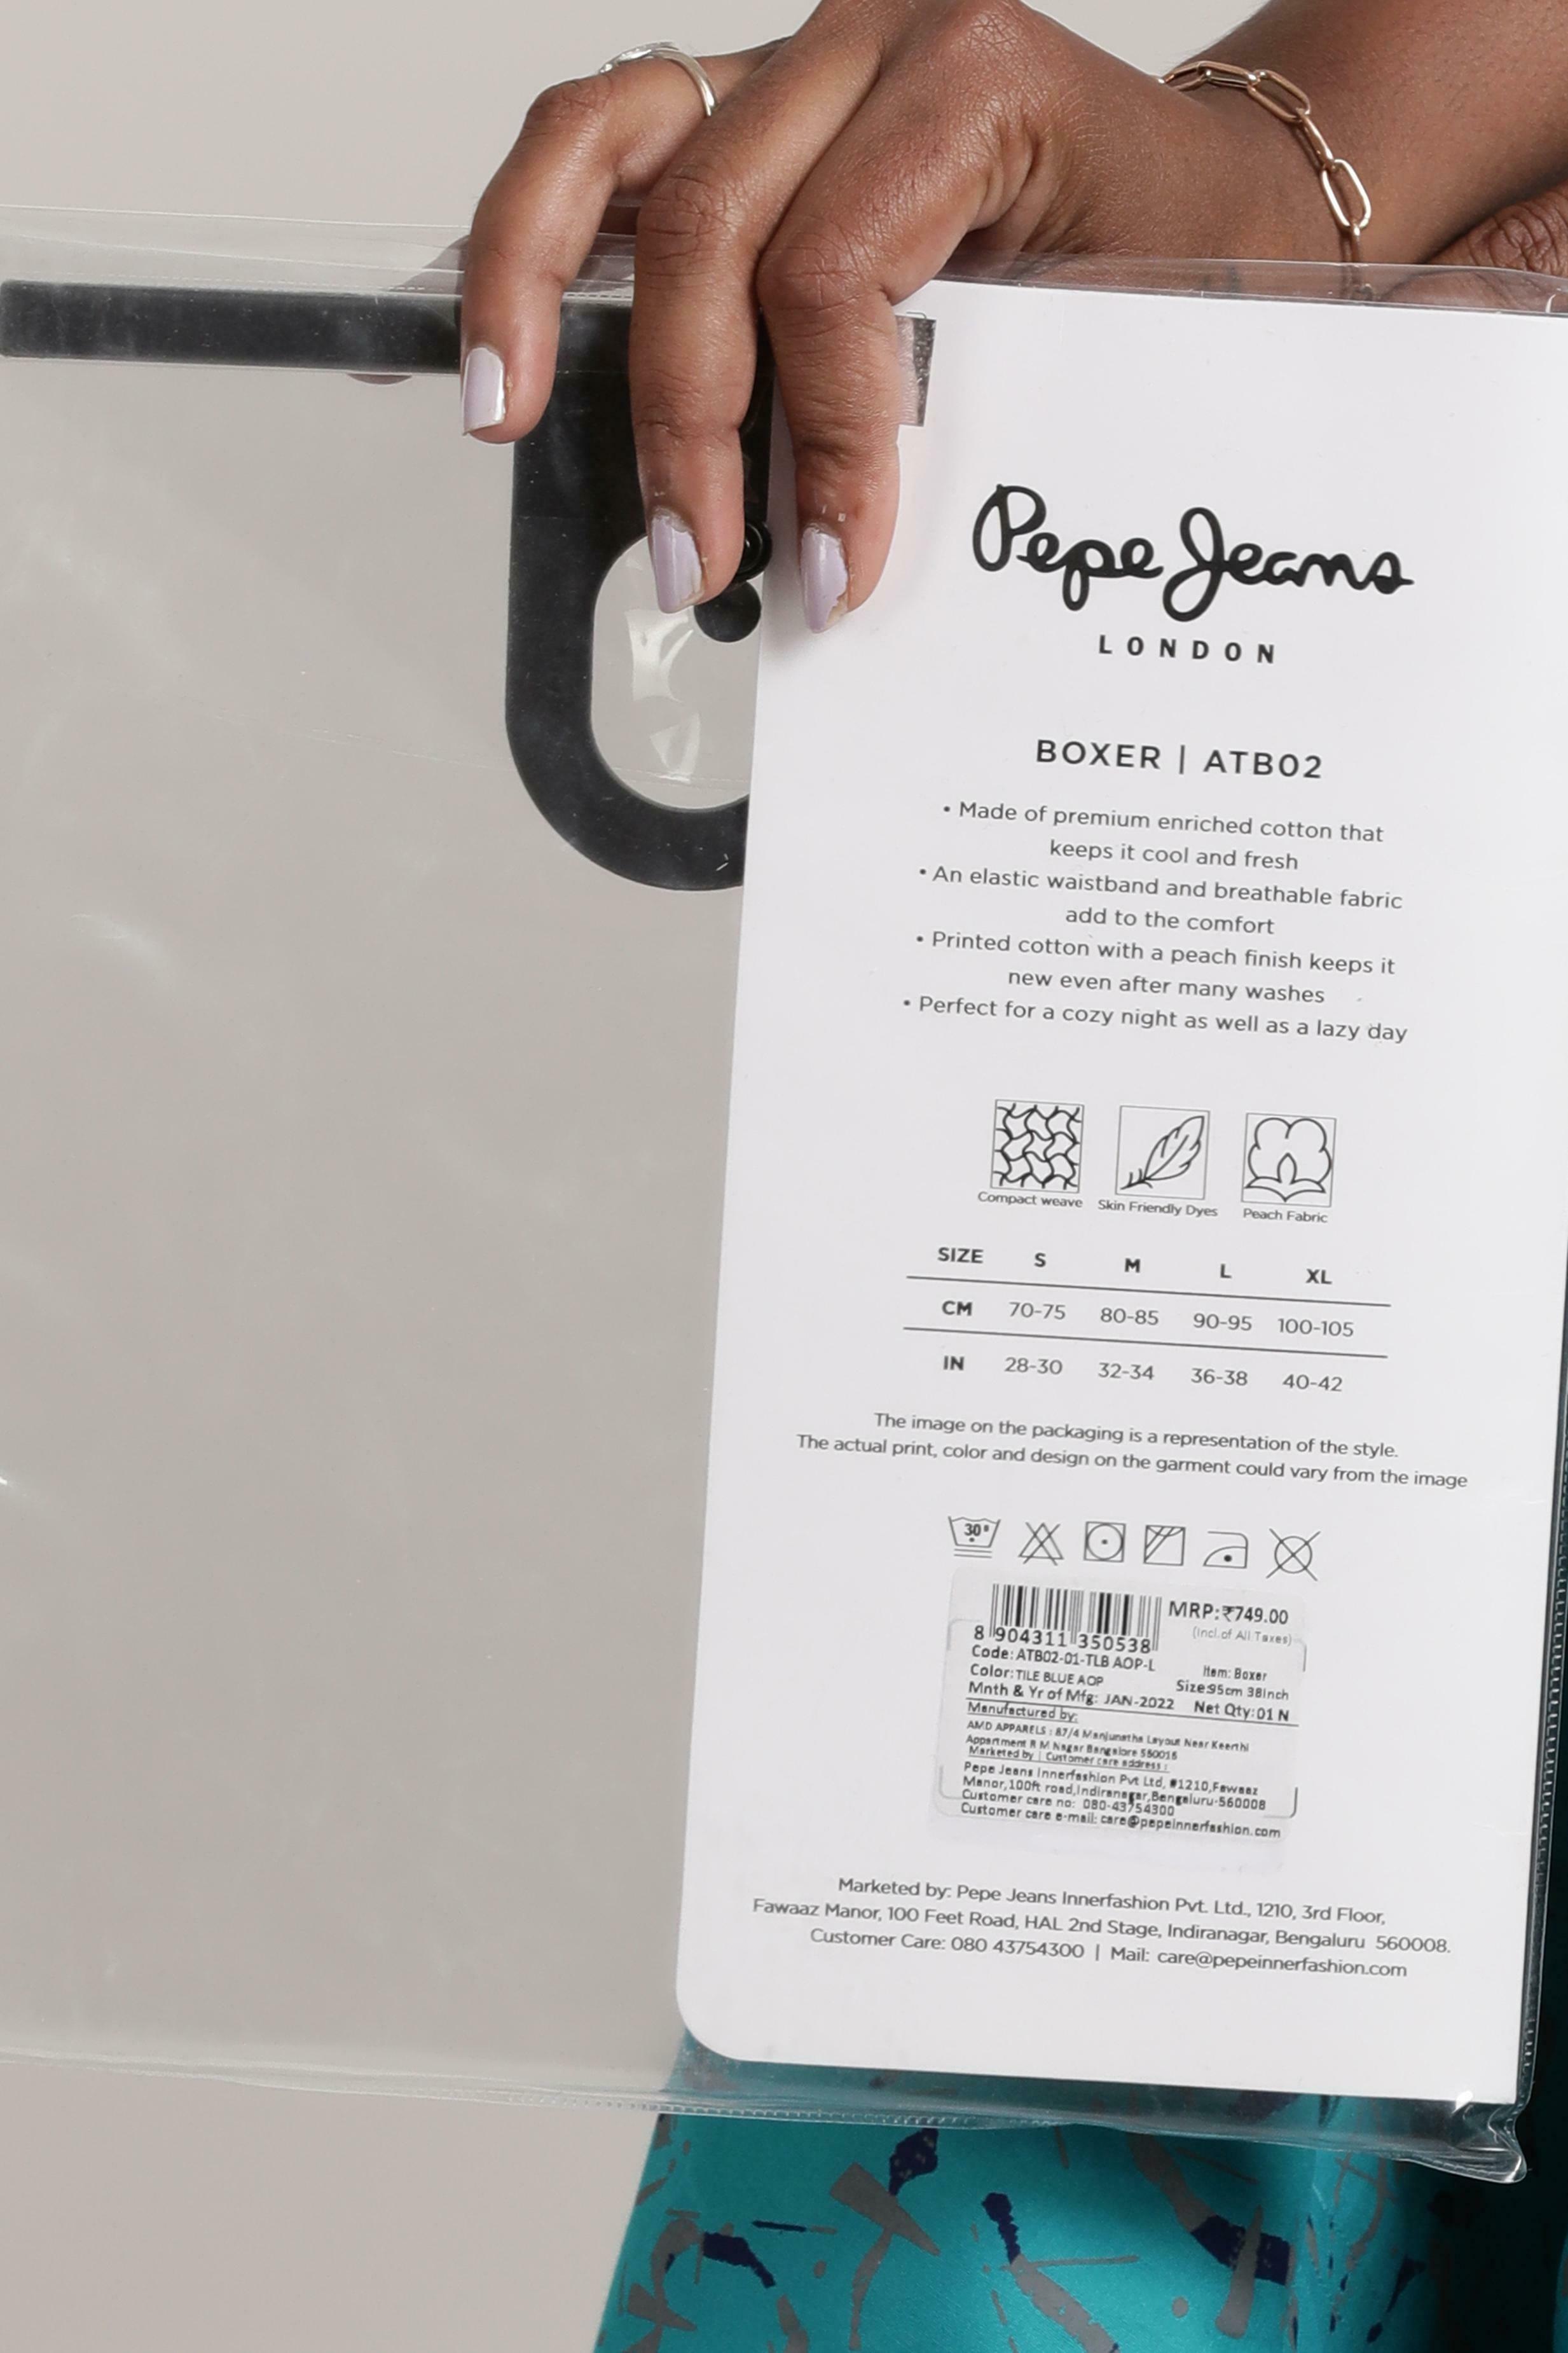 Pepe Jeans
LONDON
BOXER | ATB02
• Made of premium enriched cotton that
keeps it cool and fresh
• An elastic waistband and breathable fabric
add to the comfort
• Printed cotton with a peach finish keeps it
new even after many washes
• Perfect for a cozy night as well as a lazy day
Compact weave Skin Friendly Dyes Peach Fabric
SIZE S M L XL
CM 70-75 80-85 90-95 100-105
IN 28-30 32-34 36-38 40-42
The image on the packaging is a representation of the style.
The actual print, color and design on the garment could vary from the image
30°
MRP:₹749.00
(Incl.of All Taxes)
8 904311 350538
Code: ATB02-01-TLB AOP-L
Item: Boxer
Color: TILE BLUE AOP
Size:95cm 38Inch
Mnth & Yr of Mfg: JAN-2022 Net Qty: 01 N
Manufactured by:
AMD APPARELS : 87/4 Manjunatha Layout Near Keerthi
Appartment R M Nagar Bangalore 560016
Marketed by | Customer care address :
Pepe Jeans Innerfashion Pvt Ltd, #1210,Fawaaz
Manor,100ft road,Indiranagar,Bengaluru-560008
Customer care no: 080-43754300
Customer care e-mail: care@pepeinnerfashion.com
Marketed by: Pepe Jeans Innerfashion Pvt. Ltd., 1210, 3rd Floor,
Fawaaz Manor, 100 Feet Road, HAL 2nd Stage, Indiranagar, Bengaluru 560008.
Customer Care: 080 43754300 | Mail: care@pepeinnerfashion.com